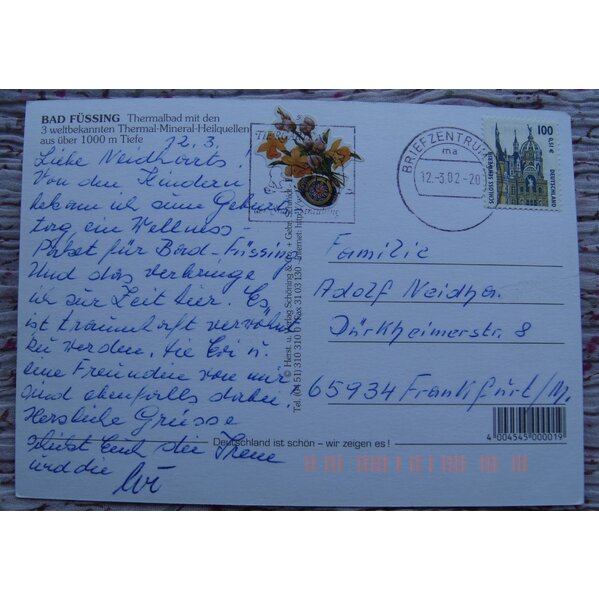 BAD FÜSSING Thermalbad mit den
3 weltbekannten Thermal-Mineral-Heilquellen
aus über 1000 m Tiefe
12.3.
Liebe Neidharts!
Von den Kindern
bekam ich zum Geburts
tag ein Wellness-
Paket für Bad-Füssing
Und das verbringe
ich zur Zeit hier. Es
ist traumhaft verwöhnt
zu werden. Die Evi u.
eine Freundin von mir
sind ebenfalls dabei.
Herzliche Grüsse
Euch die Irene
und die Evi
Deutschland ist schön – wir zeigen es!
© Herst. u. Verlag Schöning &
+ Gebr. Schmidt
Tel. (04 51) 310 310 Fax 31 03 130 Internet: http
BRIEFZENTRUM
ma
12.-3.02-20
100
0,51 €
DEUTSCHLAND
SCHLOSS SCHWERIN
Familie
Adolf Neidha.
Dürkheimerstr. 8
65934 Frankfurt/M.
4 004545 000019